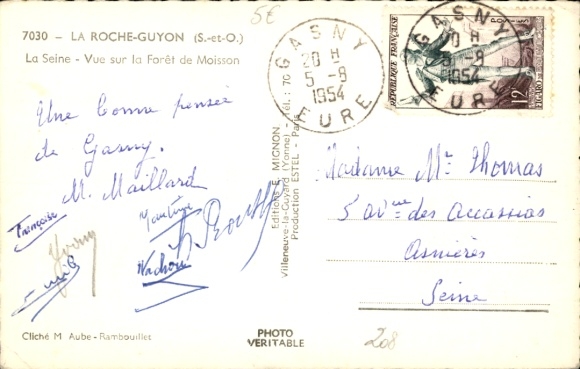 5E
7030 - LA ROCHE-GUYON (S.-et-O.)
La Seine - Vue sur la Forêt de Moisson
Une bonne pensée
de Gasny.
M. Maillard
Françoise
Cliché M. Aube - Rambouillet
Editions E. MIGNON
Villeneuve-la-Guyard (Yonne) - Tél. : 70
Production ESTEL - Paris
PHOTO
VERITABLE
GASNY
20 H
5 - 9
1954
EURE
RÉPUBLIQUE FRANÇAISE
POSTES
12F
GASNY
20 H
5 - 9
1954
EURE
Madame Mr Thomas
5 avue des accassias
Asnières
Seine
208